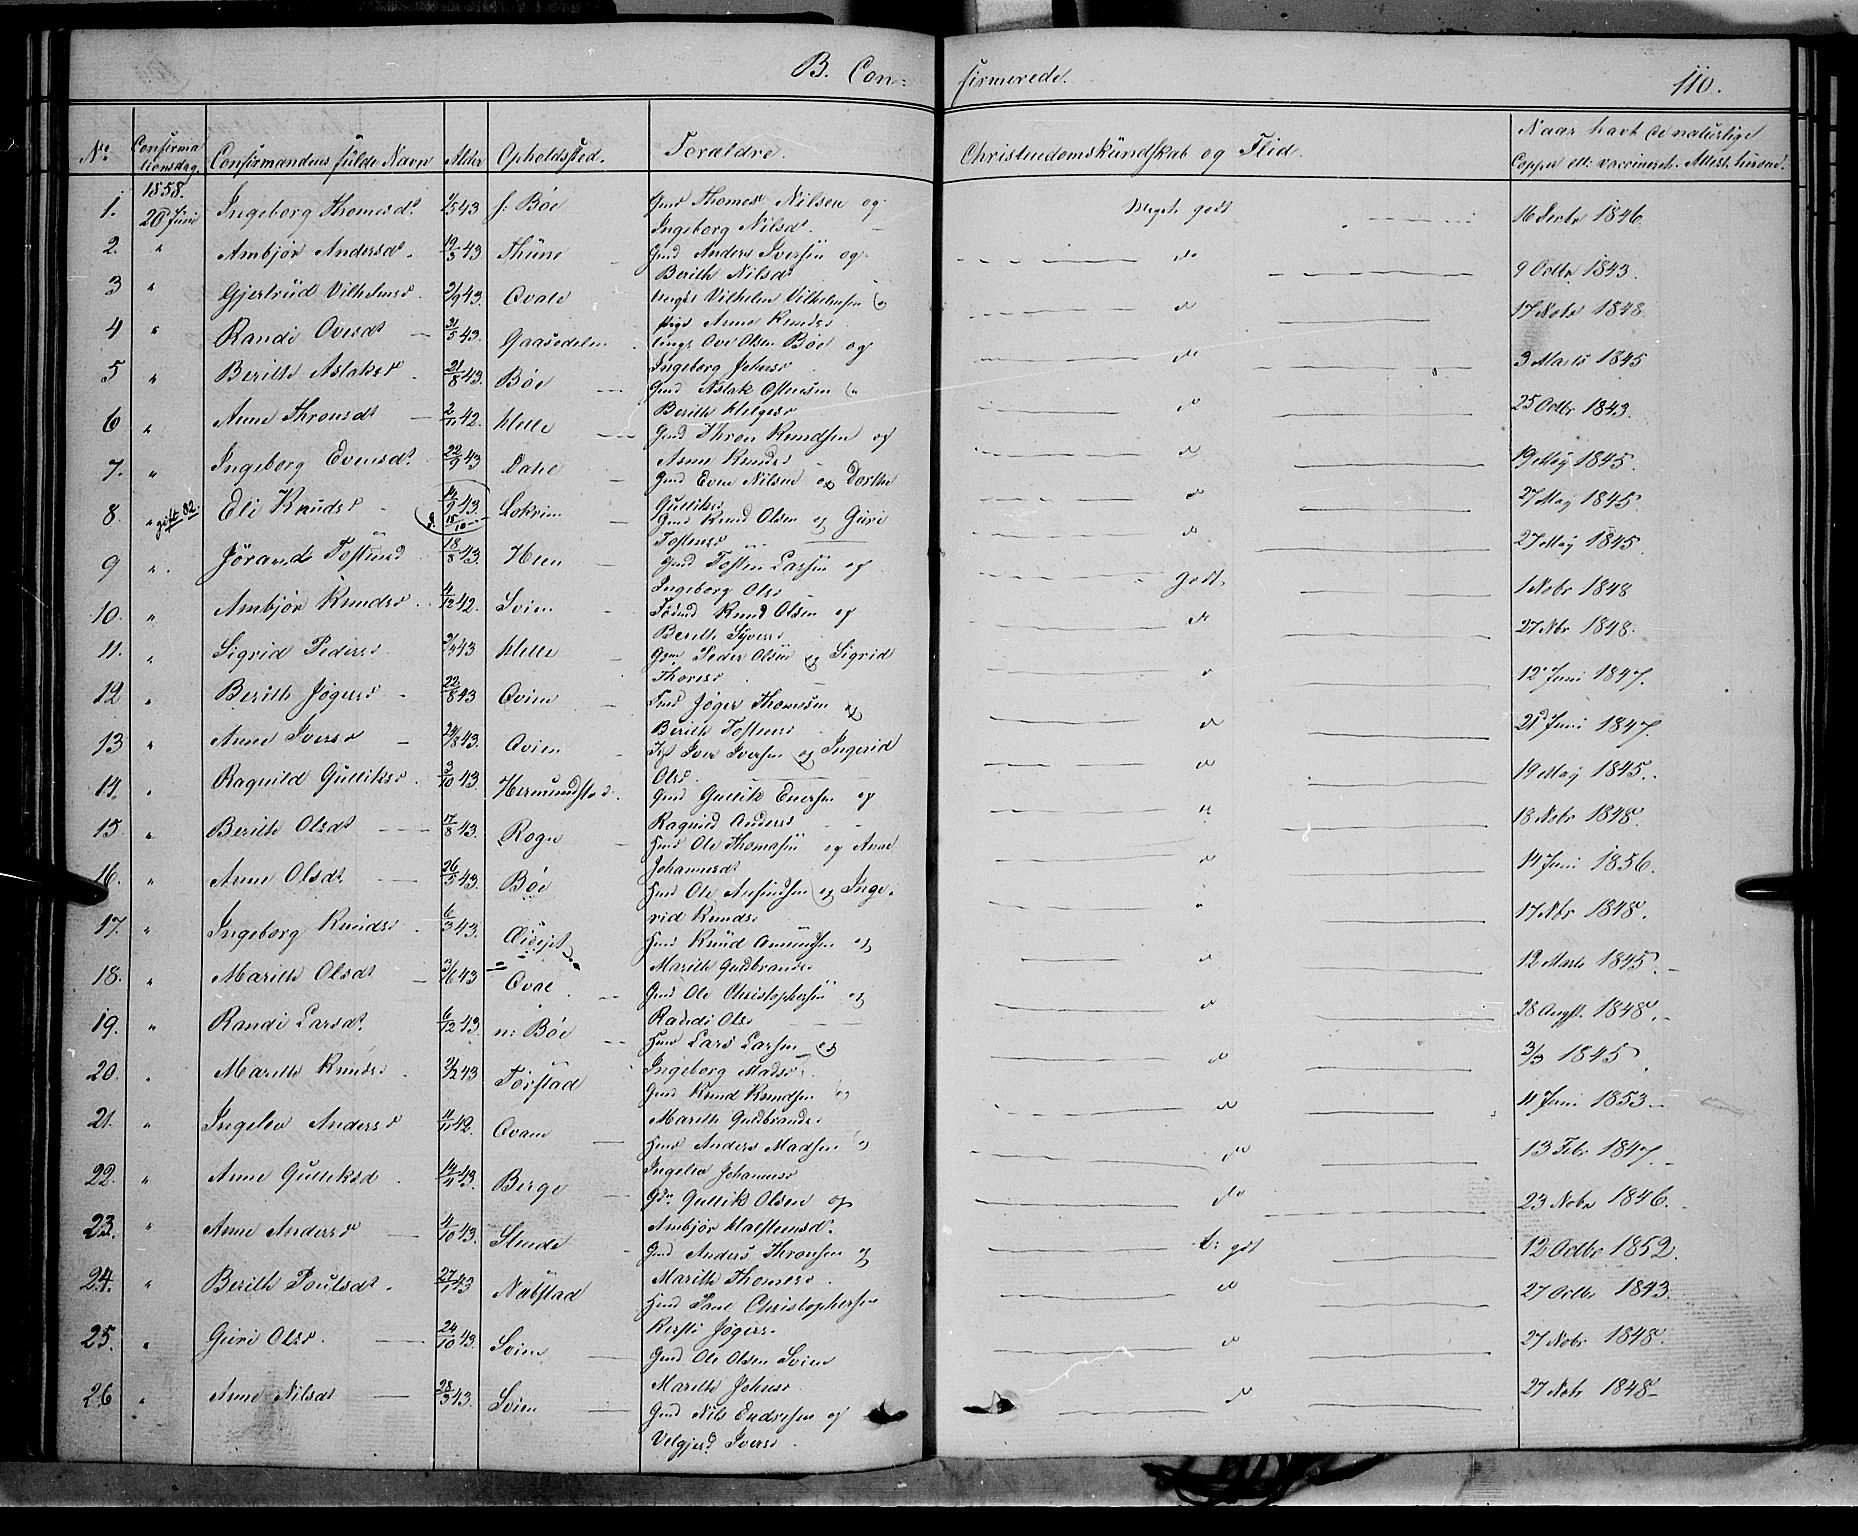 B. Con= firmerede. 110.
No. Confirmationsdag. Confirmandens fulde Navn Alder Opholdssted. Forældre. Christendomskundskab og Flid. Naar havt de naturlige Copper ell: vaccineret. Attest herom.
1858.
1. 20 Juni Ingeborg Thomesdt 43 s: Böe Gmd Thomes Nilsen og Ingeborg Nilsdt. Meget godt 1846.
2. " Ambjör Andersdt. 19/5 43 Thune Gmd Anders Iversen og Berith Nilsdt do 9 Octbr 1843.
3 " Gjertrud Vilhelmsd. 2/9 43. Qvale Ungk Vilhelm Vilhelmsen og Pige Anne Knudsd do 17 Nobr 1848.
4 " Randi Ovesdt 31/5 43. Gaasedelen Ungk Ove Olsen Böe og Ingeborg Johnsd do 3 Marts 1845
5 " Berith Aslaksd 21/8 43. Böe Gmd Aslak Ostensen og Berith Helgesd do 25 Octbr 1843.
6 " Anne Thronsdt 2/11 42. Helle Gmd Thron Knudsen og Anne Knudsd do 19 May 1845.
7. " Ingeborg Evensdt. 22/9 43 Dahle Gmd Even Nilsen og Dorthe Gulliksd do 27 May 1845.
8. " gift 82. Eli Knudsd 14/9 43. Lokrim Gmd Knud Olsen og Guri Tostensd do 27 May 1845.
9 " Jörand Tostensd 18/8 43. Heen Gmd Tosten Larsen og Ingeborg Olsd godt. 1 Nobr 1848
10. " Ambjör Knudsd 4/12 42. Svien Knud Olsen og Berith Syversd do 27 Nbr 1848.
11. " Sigrid Pedersd 43 Helle Peder Olsen og Sigrid Thoresd do 12 Juni 1847.
12 " Berith Jögersd 22/8 43 Qvien Jöger Thomesen og Berith Tostensd do 21 Juni 1847.
13 " Anne Iversd 24/8 43. Qvien Iver Iversen og Ingerid Olsd. do 19 May 1845.
14. " Ragnild Gulliksd 3/10 43. Hermundstad. Gmd Gullik Enersen og Ragnild Andersd do 18 Nobr 1848.
15. " Berith Olsdt 17/8 43. Rogn Hmd Ole Thomasen og Anne Johannesdt do 14 Juni 1856.
16. " Anne Olsdt 26/5 43. Böe Hmd Ole og Ingerid Knudsd " 17 Nbr 1848.
17. " Ingeborg Knudsd 6/3 43. Hmd Knud Amundsen og Marith Gudbrands. do 12 Marts 1845.
18. " Marith Olsdt 3/6 43 Qvale Gmd Ole Christophersen og Randi Olsd do 28 Augst. 1848.
19. " Randi Larsdt. 6/12 43. n: Böe Hmd Lars Larsen og Ingeborg Madsd. do 3/3 1845
20. " Marith Knudsd 43 Torstad Gmd Knud Knudsen og Marith Guldbrandsd do 11 Juni 1853
21. " Ingelev Andersd 4/11 42. Qvam Hmd Anders Madsen og Ingelev Johannesd do 13 Febr 1847.
22. " Anne Gulliksd 14/11 43. Berge Gullik Olsen og Ambjör Halstensdt. do 23 Nobr 1846.
23. " Anne Andersd 4/10 43. Steude Gmd Anders Thronsen og Marith Thomesd. t: gdt 12 Octbr 1852.
24. " Berith Poulsdt. 27/ 43 Nöbstad Hmd Paul Christophersen Kersti Jögersd do 27 Octbr 1843.
25. " Guri Olsd. 24/10 43. Svien Gmd Ole Olsen Svien Marith Johnsd do 27 Nobr 1848.
26 " Anne Nilsdt 28/3 43. Svien Gmd Nils Endresen og Velgjerd Iversd. do 27 Nobr 1848